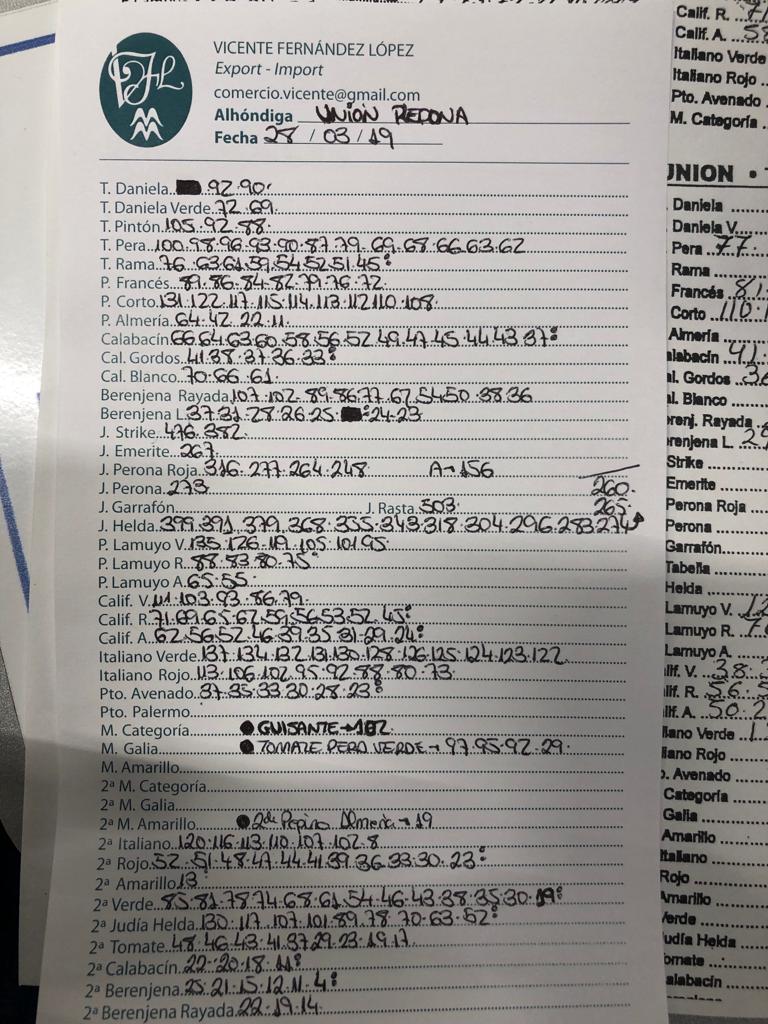 VICENTE FERNÁNDEZ LÓPEZ
Export - Import
comercio.vicente@gmail.com
Alhóndiga UNION REDONA
Fecha 28 / 03 / 19
T. Daniela 92.90
T. Daniela Verde 72.69
T. Pintón 105.92.88
T. Pera 100.98.96.93.90.87.79.69.68.66.63.62
T. Rama 76.63.61.59.54.52.51.45
P. Francés 89.86.84.82.79.76.72
P. Corto 131.122.117.115.114.113.112.110.108
P. Almería 64.42.22.11
Calabacín 66.64.63.60.58.56.52.49.47.45.44.43.37
Cal. Gordos 41.38.37.36.33
Cal. Blanco 70.66.61
Berenjena Rayada 107.102.89.86.77.67.54.50.38.36
Berenjena L. 37.31.28.26.25. 24.23
J. Strike 476.382
J. Emerite 267
J. Perona Roja 316.277.264.248 A→156
J. Perona 273 260.
J. Garrafón J. Rasta 503 265
J. Helda 399.391.379.368.355.343.318.304.296.283.274
P. Lamuyo V. 135.126.119.105.101.95
P. Lamuyo R. 88.83.80.75
P. Lamuyo A. 65.55
Calif. V. 111.103.93.86.79
Calif. R. 71.69.65.62.59.56.53.52.45
Calif. A. 62.56.52.46.39.35.31.29.24
Italiano Verde 137.134.132.131.130.128.126.125.124.123.122
Italiano Rojo 113.106.102.95.92.88.80.73
Pto. Avenado 37.35.33.30.28.23
Pto. Palermo
M. Categoría ● GUISANTE→182
M. Galia ● TOMATE PERA VERDE→97.95.92.29
M. Amarillo
2ª M. Categoría
2ª M. Galia
2ª M. Amarillo ● 2de Pepino Almeria→19
2ª Italiano 120.116.113.110.107.102.8
2ª Rojo 52.51.48.47.44.41.39.36.33.30.23
2ª Amarillo 13
2ª Verde 85.81.78.74.68.61.54.46.43.38.35.30.19
2ª Judía Helda 130.117.107.101.89.78.70.63.52
2ª Tomate 48.46.43.41.37.29.23.19.17
2ª Calabacín 22.20.18.11
2ª Berenjena 25.21.15.12.11.4
2ª Berenjena Rayada 22.19.14
Calif. R.
Calif. A.
Italiano Verde
Italiano Rojo
Pto. Avenado
M. Categoría
UNION
Daniela
Daniela V.
Pera 77
Rama
Francés
Corto
Almería
Gordos
Blanco
Rayada
Strike
Emerite
Perona Roja
Perona
Garrafón
Tabella
Helda
Lamuyo V.
Lamuyo R.
Lamuyo A.
V. 38
R. 56
A. 50
Verde
Rojo
Avenado
Categoría
Galia
Amarillo
Italiano
Rojo
Amarillo
Verde
Helda